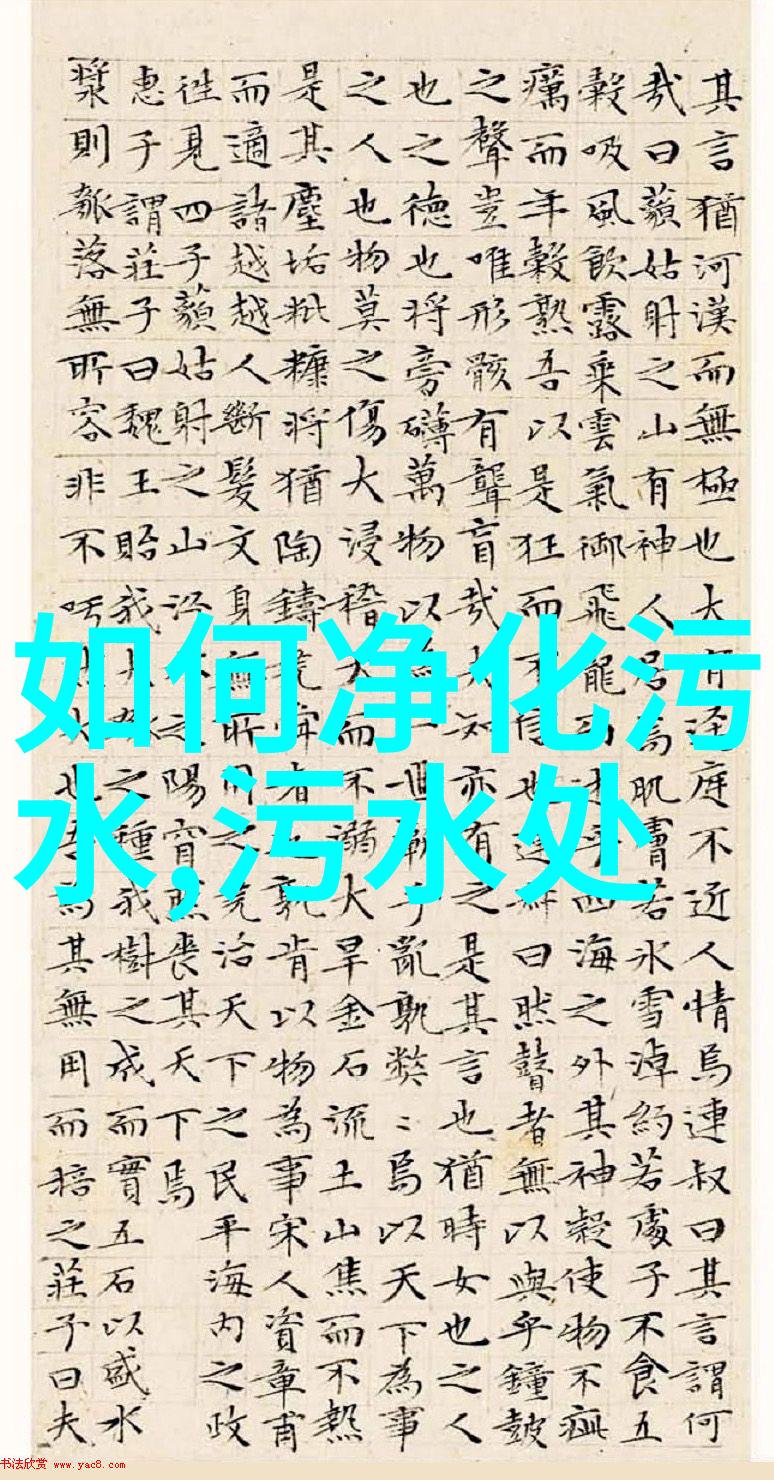 其言猶河漢而無極也大有逕庭不近人情焉連叔曰其言謂何
哉曰藐姑射之山有神人居焉肌膚若氷雪淖約若處子不食五
穀吸風飲露乘雲氣御飛龍而遊乎四海之外其神凝使物不疵
癘而年穀熟吾以是狂而不信也連叔曰然瞽者無以與乎鐘鼓
之聲豈唯形骸有聾盲哉夫知亦有之是其言也猶時女也之人
也之德也将旁礴萬物以為一世蘄乎亂孰弊〻焉以天下為事
之人也物莫之傷大浸稽天而不溺大旱金石流土山焦而不熱
是其塵垢粃糠将猶陶鑄堯舜者也孰肯以物為事宋人資章甫
而適諸越越人斷髮文身無所用之堯治天下之民平海内之政
往見四子藐姑射之山汾水之陽窅然喪其天下焉
惠子謂莊子曰魏王貽我大瓠之種我樹之成而實五石以盛水
漿則瓠落無所容非不呺然大也吾為其無用而掊之莊子曰夫
如何净化污
水,污水处
书法欣赏 www.yac8.com